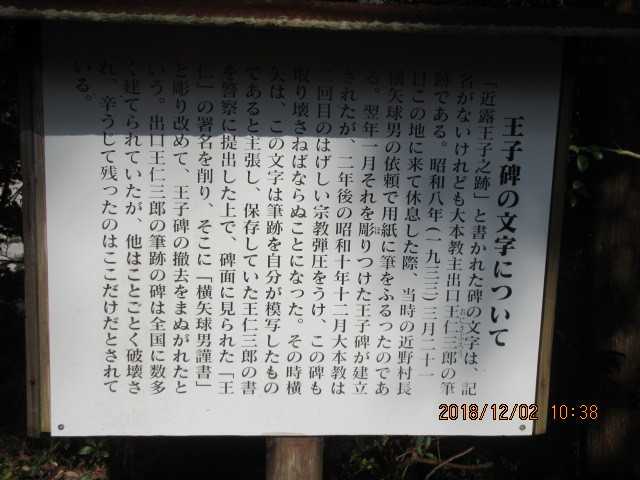 王子碑の文字について
「近露王子之跡」と書かれた碑の文字は、記
名がないけれども大本教主出口王仁三郎の筆
跡である。昭和八年(一九三三)三月二十一
日この地に来て休息した際、当時の近野村長
横矢球男の依頼で用紙に筆をふるつたのであ
る。翌年一月それを彫りつけた王子碑が建立
されたが、二年後の昭和十年十二月大本教は
二回目のはげしい宗教弾圧をうけ、この碑も
取り壊さねばならぬことになった。その時横
矢は、この文字は筆跡を自分が模写したもの
であると主張し、保存していた王仁三郎の書
を警察に提出した上で、碑面に見られた「王
仁」の署名を削り、そこに「横矢球男謹書」
と彫り改めて、王子碑の撤去をまぬがれたと
いう。出口王仁三郎の筆跡の碑は全国に数多
く建てられていたが、他はことごとく破壊さ
れ、辛うじて残ったのはここだけだとされて
いる。
2018/12/02 10:38